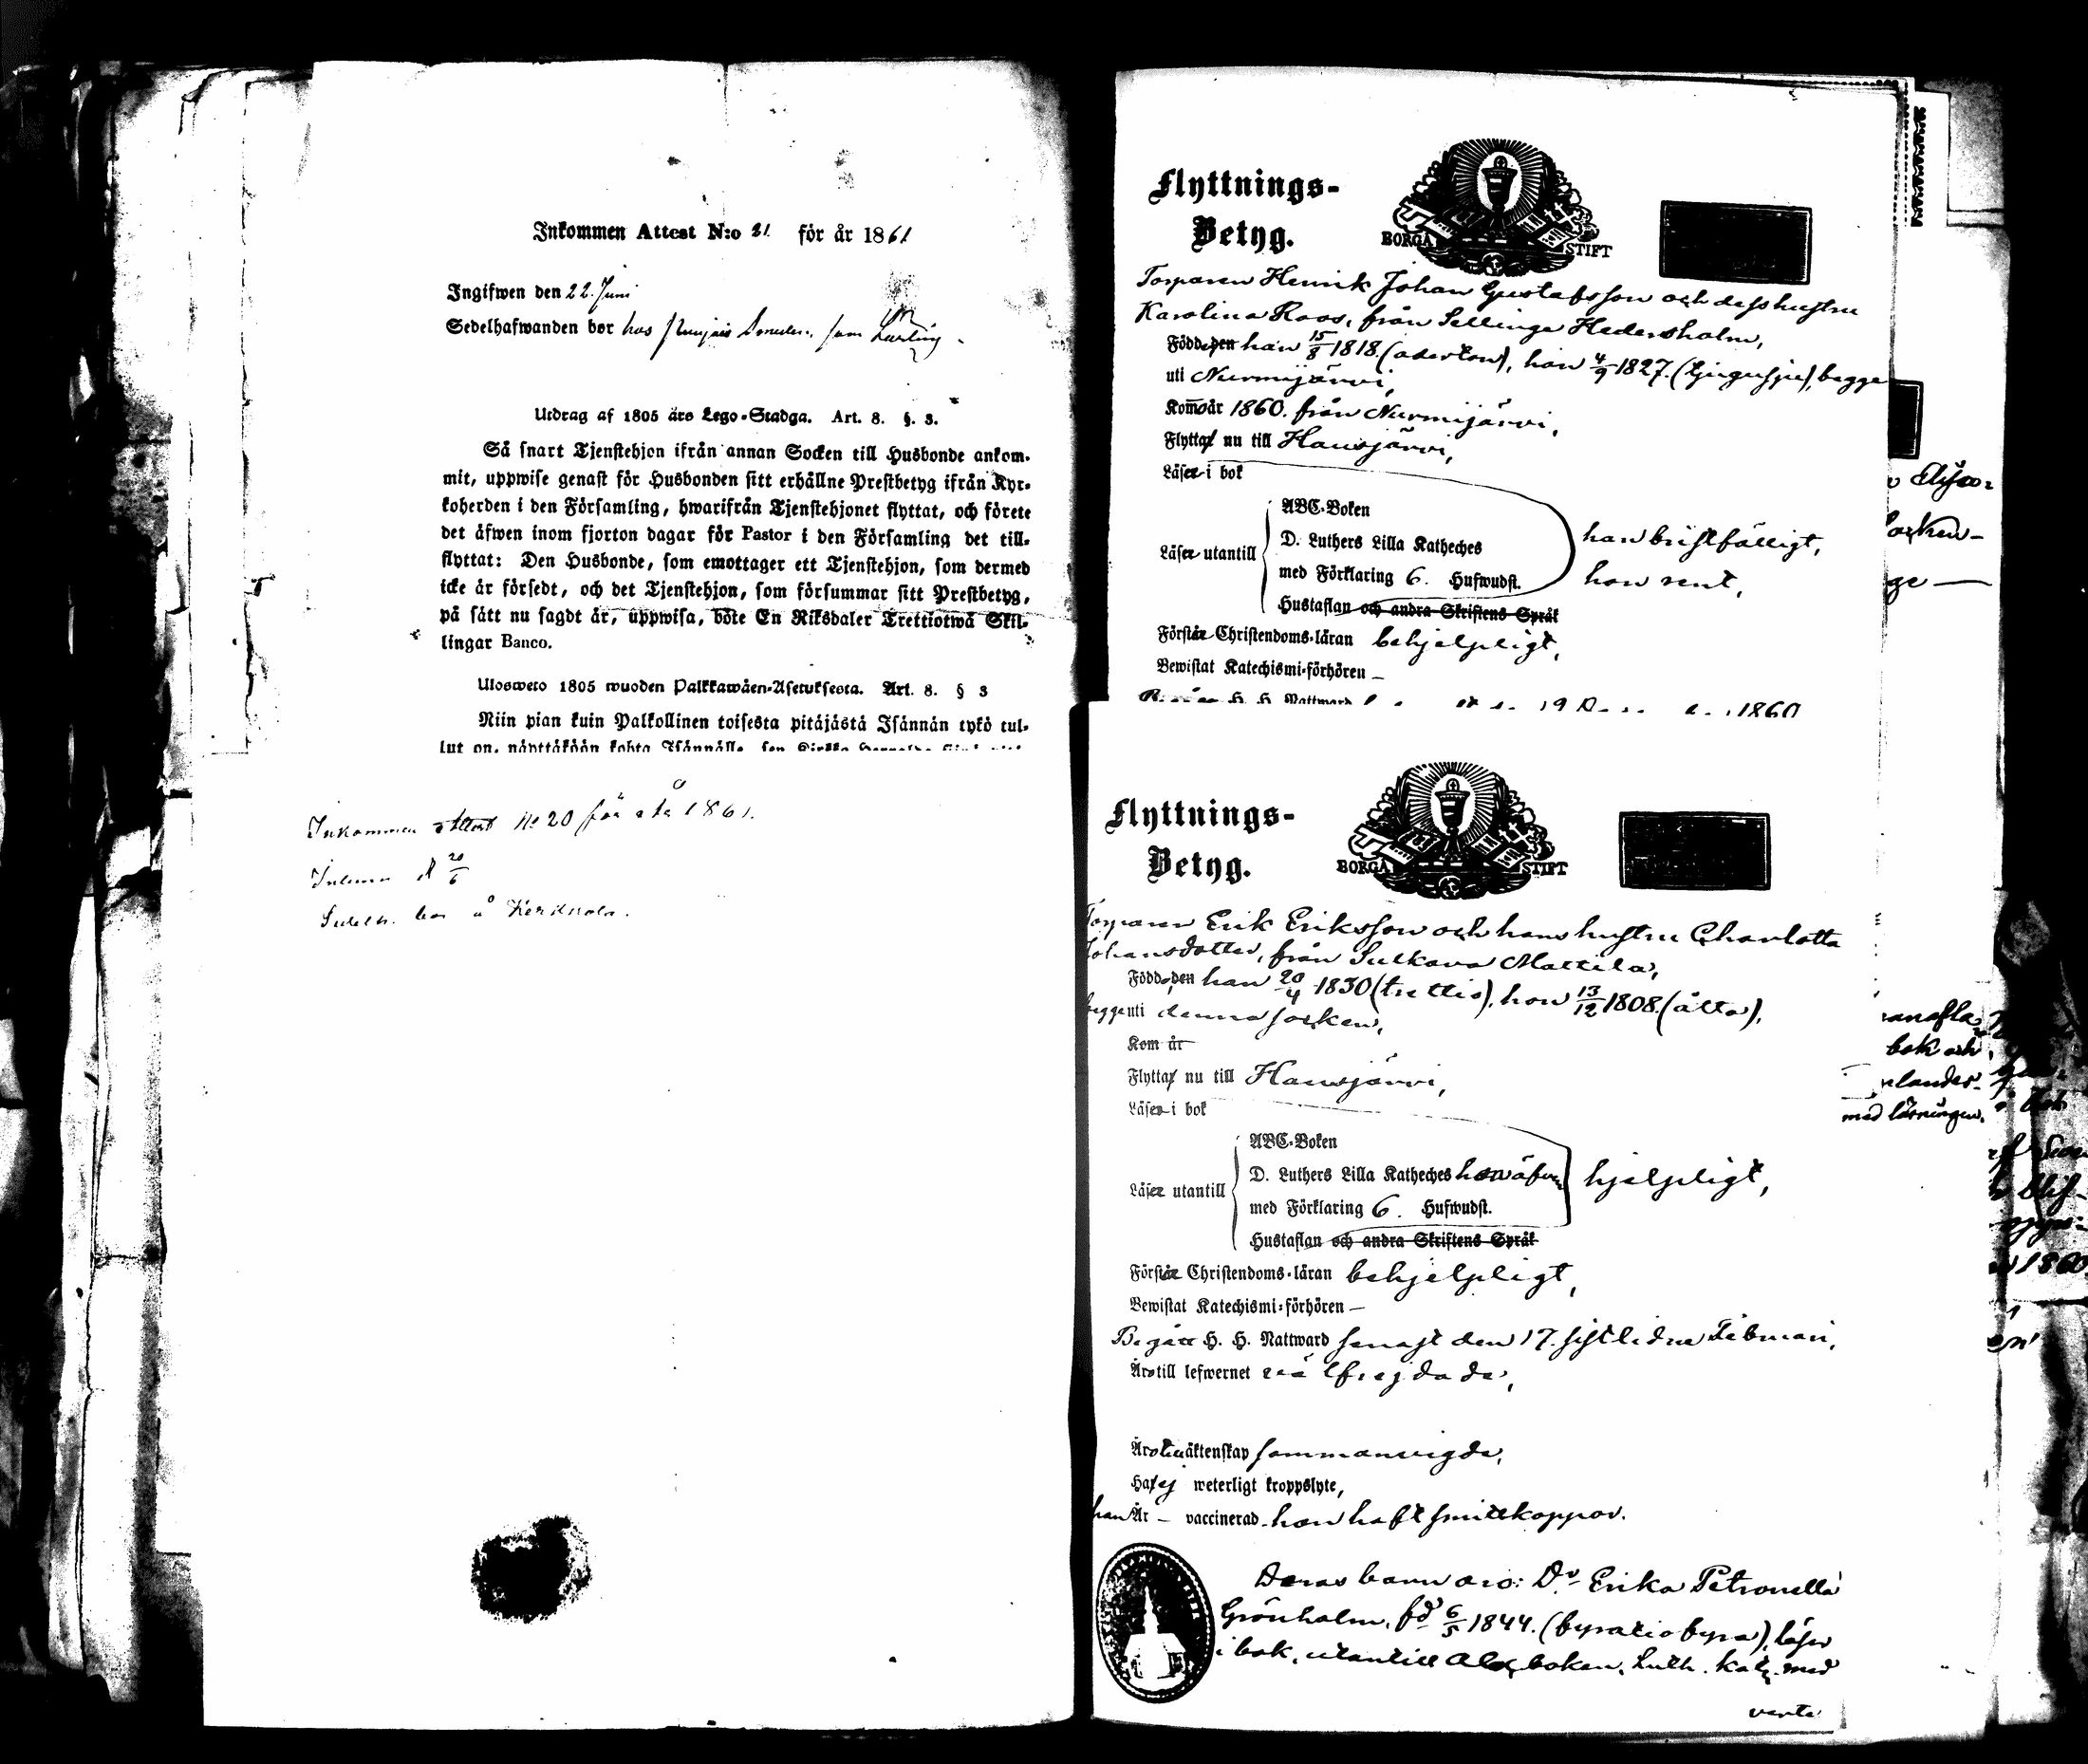 Inkommen Attest N:o 21. för år 1861
Ingifwen den 22. Juni
Sedelhafwanden bor hos
Utdrag af 1805 års Lego-Stadga. Art. 8. §. 3.
Så snart Tjenstehjon ifrån annan Socken till Husbonde ankom-
mit, uppwise genast för Husbonden sitt erhållne Prestbetyg ifrån Kyr-
koherden i den Församling, hwarifrån Tjenstehjonet flyttat, och förete
det äfwen inom fjorton dagar för Pastor i den Församling det till-
flyttat: Den Husbonde, som emottager ett Tjenstehjon, som dermed
icke är försedt, och det Tjenstehjon, som försummar sitt Prestbetyg,
på sätt nu sagdt är, uppwisa, böte En Riksdaler Trettiotwå Skil-
lingar Banco.
Ulosweto 1805 wuoden Palkkawäen-Asetuksesta. Art. 8. § 3
Niin pian kuin Palkollinen toisesta pitäjästä Isännän tykö tul-
lut on, näyttäköön kohta Isännälle, sen
Inkommen Attest No 20 för år 1861.
d 20/6
Sedelh. bor å
Flyttnings-
Betyg.
BORGÅ STIFT
Torparen Henrik Johan Gustafsson och dess hustru
Karolina Roos, från Sellinge Hedersholm,
Född den han 15/8 1818. (aderton), hon 4/9 1827. (tjugusju), begge
uti Nurmijärvi,
Kom år 1860. från Nurmijärvi,
Flytta nu till Hausjärvi,
Läser i bok
ABC-Boken
Läser utantill D. Luthers Lilla Katheches
med Förklaring 6. Hufwudst.
han bristfälligt,
hon rent,
Hustaflan och andra Skriftens Språk
Förstår Christendoms-läran behjelpligt,
Bewistat Katechismi-förhören —
H. H. Nattward 1860
Flyttnings-
Betyg.
BORGÅ STIFT
Torparen Erik Eriksson och hans hustru Charlotta
Johansdotter, från Sulkava Mattila,
Född den han 20/4 1830 (trettio), hon 13/12 1808. (åtta),
begge uti denna socken,
Kom år
Flytta nu till Hausjärvi,
Läser i bok
ABC-Boken
Läser utantill D. Luthers Lilla Katheches hon äfven hjelpligt,
med Förklaring 6. Hufwudst.
Hustaflan och andra Skriftens Språk
Förstår Christendoms-läran behjelpligt,
Bewistat Katechismi-förhören —
Begått H. H. Nattward senast den 17. sistlidne Februari,
Äro till lefwernet wälfrejdade,
Äro till äktenskap sammanvigde,
Ha ej weterligt kroppslyte,
han Är — vaccinerad hon haft smittkoppor.
Deras barn äro: Dr Erika Petronella
Grönholm, fd 6/5 1844. (fyratio fyra), läser
i bok, utantill Abc boken, Luth. kat. med
verte
bok och
med läsningen.
1860